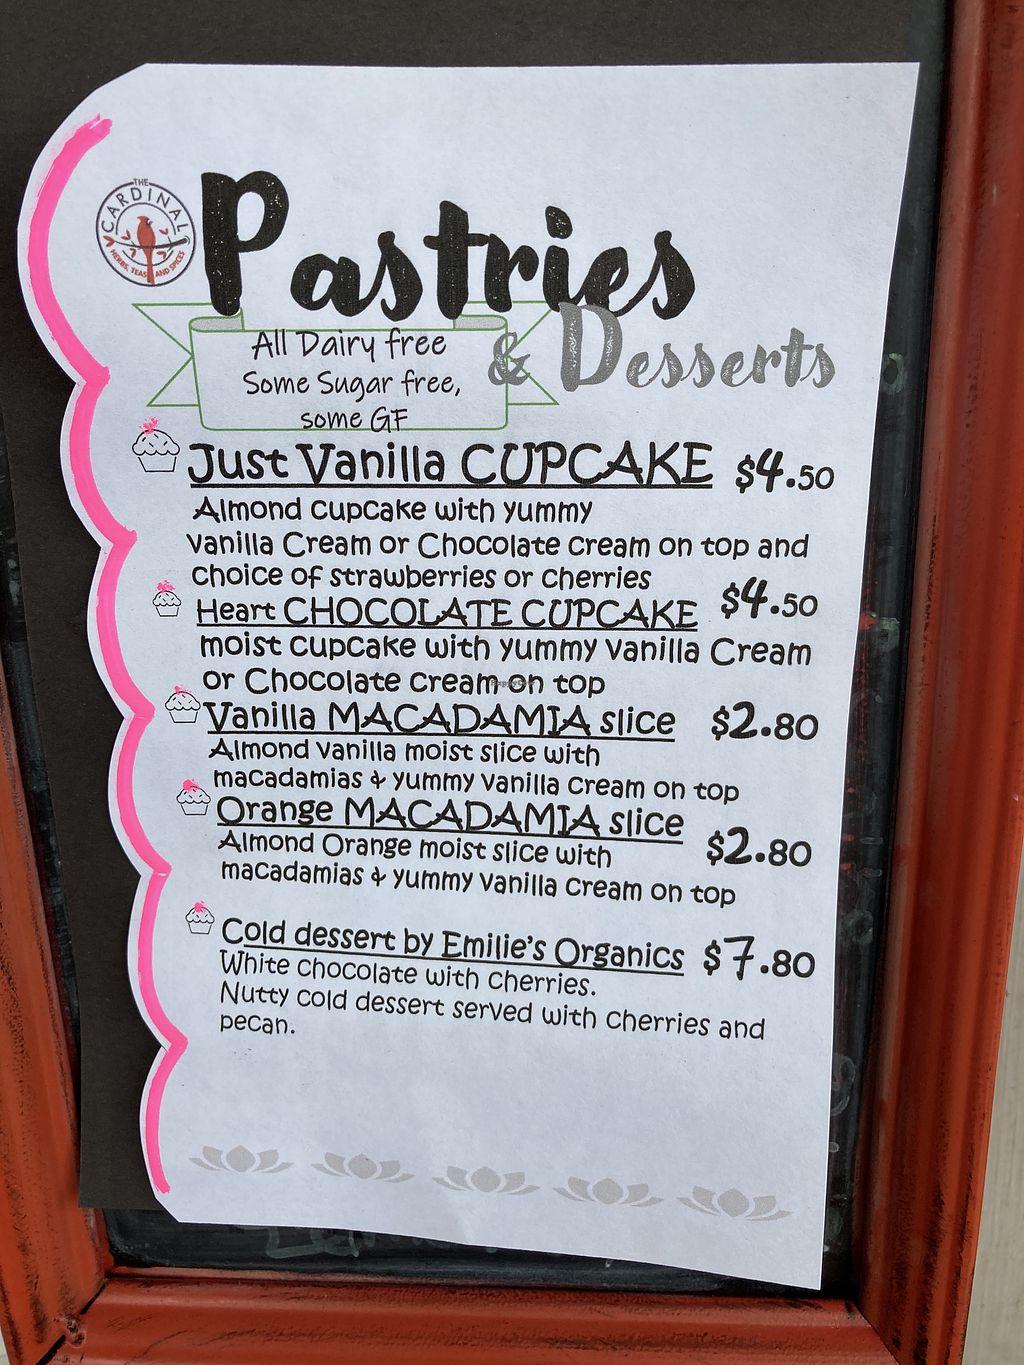 THE
CARDINAL
HERBS, TEAS AND SPICES
Pastries
& Desserts
All Dairy free
Some Sugar free,
some GF
Just Vanilla CUPCAKE $4.50
Almond cupcake with yummy
vanilla Cream or Chocolate cream on top and
choice of strawberries or cherries
Heart CHOCOLATE CUPCAKE $4.50
moist cupcake with yummy vanilla Cream
or Chocolate cream on top
HappyCow
Vanilla MACADAMIA slice $2.80
Almond vanilla moist slice with
macadamias & yummy vanilla cream on top
Orange MACADAMIA slice $2.80
Almond Orange moist slice with
macadamias & yummy vanilla cream on top
Cold dessert by Emilie's Organics $7.80
White chocolate with cherries.
Nutty cold dessert served with cherries and
pecan.